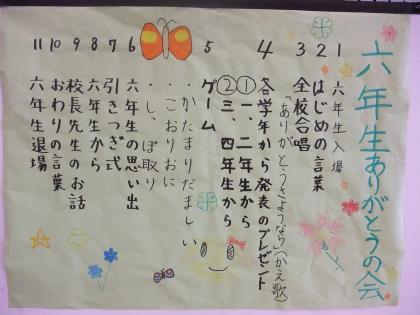 六年生ありがとうの会
1 六年生入場
2 はじめの言葉
3 全校合唱
「ありがとうさようなら」(かえ歌)
4 各学年から発表のプレゼント
①一、二年生から
②三、四年生から
5 ゲーム
・かたまりだましい
・こおりおに
・しっぽ取り
6 六年生の思い出
7 引きつぎ式
8 六年生から
9 校長先生のお話
10 おわりの言葉
11 六年生退場